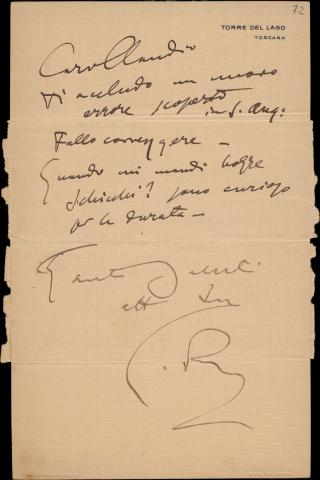 72
TORRE DEL LAGO
TOSCANA
Caro Clandio
Ti accludo un nuovo
errore scoperto in S. Ang:
Fallo correggere –
Quando mi mandi bozze
Schicchi? sono curioso
per la durata –
Tanti saluti